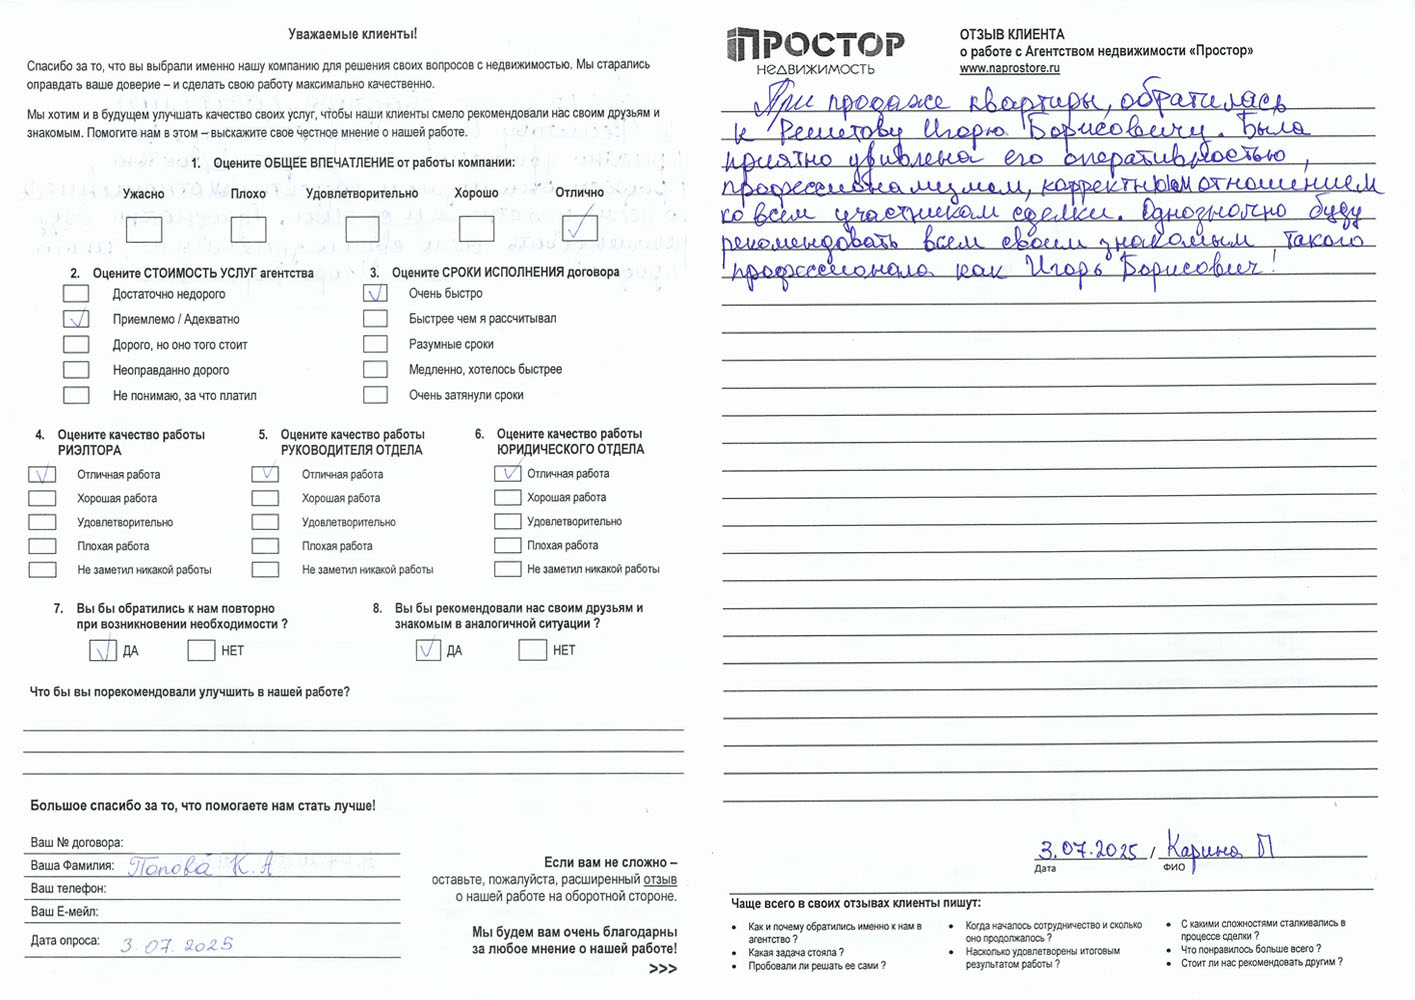 Уважаемые клиенты!
Спасибо за то, что вы выбрали именно нашу компанию для решения своих вопросов с недвижимостью. Мы старались
оправдать ваше доверие – и сделать свою работу максимально качественно.
Мы хотим и в будущем улучшать качество своих услуг, чтобы наши клиенты смело рекомендовали нас своим друзьям и
знакомым. Помогите нам в этом – выскажите свое честное мнение о нашей работе.
1. Оцените ОБЩЕЕ ВПЕЧАТЛЕНИЕ от работы компании:
Ужасно Плохо Удовлетворительно Хорошо Отлично
2. Оцените СТОИМОСТЬ УСЛУГ агентства
Достаточно недорого
Приемлемо / Адекватно
Дорого, но оно того стоит
Неоправданно дорого
Не понимаю, за что платил
3. Оцените СРОКИ ИСПОЛНЕНИЯ договора
Очень быстро
Быстрее чем я рассчитывал
Разумные сроки
Медленно, хотелось быстрее
Очень затянули сроки
4. Оцените качество работы
РИЭЛТОРА
Отличная работа
Хорошая работа
Удовлетворительно
Плохая работа
Не заметил никакой работы
5. Оцените качество работы
РУКОВОДИТЕЛЯ ОТДЕЛА
Отличная работа
Хорошая работа
Удовлетворительно
Плохая работа
Не заметил никакой работы
6. Оцените качество работы
ЮРИДИЧЕСКОГО ОТДЕЛА
Отличная работа
Хорошая работа
Удовлетворительно
Плохая работа
Не заметил никакой работы
7. Вы бы обратились к нам повторно
при возникновении необходимости ?
ДА НЕТ
8. Вы бы рекомендовали нас своим друзьям и
знакомым в аналогичной ситуации ?
ДА НЕТ
Что бы вы порекомендовали улучшить в нашей работе?
Большое спасибо за то, что помогаете нам стать лучше!
Ваш № договора:
Ваша Фамилия: Попова К.А
Ваш телефон:
Ваш Е-мейл:
Дата опроса: 3.07.2025
Если вам не сложно –
оставьте, пожалуйста, расширенный отзыв
о нашей работе на оборотной стороне.
Мы будем вам очень благодарны
за любое мнение о нашей работе!
>>>
ПРОСТОР
НЕДВИЖИМОСТЬ
ОТЗЫВ КЛИЕНТА
о работе с Агентством недвижимости «Простор»
www.naprostore.ru
При продаже квартиры, обратилась
к Решетову Игорю Борисовичу. Была
приятно удивлена его оперативностью,
профессионализмом, корректным отношением
ко всем участникам сделки. Однозначно буду
рекомендовать всем своим знакомым такого
профессионала как Игорь Борисович!
3.07.2025 / Карина П
Дата ФИО
Чаще всего в своих отзывах клиенты пишут:
• Как и почему обратились именно к нам в
агентство ?
• Какая задача стояла ?
• Пробовали ли решать ее сами ?
• Когда началось сотрудничество и сколько
оно продолжалось ?
• Насколько удовлетворены итоговым
результатом работы ?
• С какими сложностями сталкивались в
процессе сделки ?
• Что понравилось больше всего ?
• Стоит ли нас рекомендовать другим ?